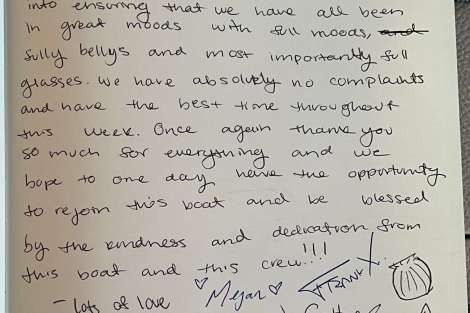 into ensuring that we have all been
in great moods with full moods, and
fully bellys and most importantly full
glasses. We have absolutely no complaints
and have the best time throughout
this week. Once again thank you
so much for everything and we
hope to one day have the opportunity
to rejoin this boat and be blessed
by the kindness and dedication from
this boat and this crew!!!
- Lots of love Megan